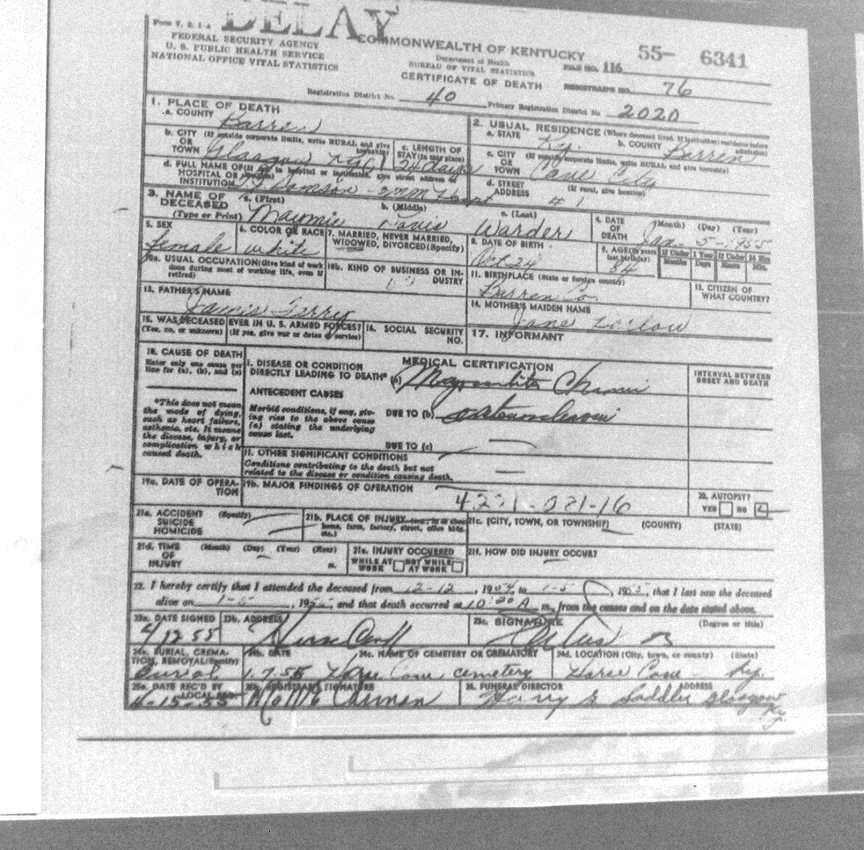 DELAY
Form V. S. 1-A
FEDERAL SECURITY AGENCY
U. S. PUBLIC HEALTH SERVICE
NATIONAL OFFICE VITAL STATISTICS
COMMONWEALTH OF KENTUCKY
Department of Health
BUREAU OF VITAL STATISTICS
CERTIFICATE OF DEATH
55- 6341
FILE NO. 116
REGISTRARS NO. 76
Registration District No. 40 Primary Registration District No. 2020
1. PLACE OF DEATH
a. COUNTY Barren
b. CITY (If outside corporate limits, write RURAL and give township)
OR TOWN Glasgow Ky
c. LENGTH OF STAY (in this place) 24 days
d. FULL NAME OF (If not in hospital or institution, give street address or location)
HOSPITAL OR INSTITUTION
2. USUAL RESIDENCE (Where deceased lived. If institution: residence before admission)
a. STATE Ky. b. COUNTY Barren
c. CITY (If outside corporate limits, write RURAL and give township)
OR TOWN Cave City
d. STREET ADDRESS (If rural, give location) # 1
3. NAME OF DECEASED (Type or Print)
a. (First) Maymie b. (Middle) Davis c. (Last) Warder
4. DATE OF DEATH (Month) (Day) (Year) Jan. 5-1955
5. SEX female
6. COLOR OR RACE white
7. MARRIED, NEVER MARRIED, WIDOWED, DIVORCED (Specify)
8. DATE OF BIRTH Oct 24
9. AGE (In years last birthday) 84
If Under 1 Year Months Days
If Under 24 Hrs Hours Min.
10a. USUAL OCCUPATION (Give kind of work done during most of working life, even if retired)
10b. KIND OF BUSINESS OR INDUSTRY
11. BIRTHPLACE (State or foreign country) Barren Co.
12. CITIZEN OF WHAT COUNTRY?
13. FATHER'S NAME Terry
14. MOTHER'S MAIDEN NAME Jane
15. WAS DECEASED EVER IN U. S. ARMED FORCES?
(Yes, no, or unknown) (If yes, give war or dates of service)
16. SOCIAL SECURITY NO.
17. INFORMANT
18. CAUSE OF DEATH
Enter only one cause per line for (a), (b), and (c)
*This does not mean the mode of dying, such as heart failure, asthenia, etc. It means the disease, injury, or complication which caused death.
MEDICAL CERTIFICATION
INTERVAL BETWEEN ONSET AND DEATH
I. DISEASE OR CONDITION DIRECTLY LEADING TO DEATH* (a) Myocarditis Chronic
ANTECEDENT CAUSES
Morbid conditions, if any, giving rise to the above cause (a) stating the underlying cause last.
DUE TO (b)
DUE TO (c)
II. OTHER SIGNIFICANT CONDITIONS
Conditions contributing to the death but not related to the disease or condition causing death.
19a. DATE OF OPERATION
19b. MAJOR FINDINGS OF OPERATION
4221-021-16
20. AUTOPSY?
YES NO
21a. ACCIDENT SUICIDE HOMICIDE (Specify)
21b. PLACE OF INJURY (e.g., in or about home, farm, factory, street, office bldg. etc.)
21c. (CITY, TOWN, OR TOWNSHIP) (COUNTY) (STATE)
21d. TIME OF INJURY (Month) (Day) (Year) (Hour) m.
21e. INJURY OCCURRED
WHILE AT WORK NOT WHILE AT WORK
21f. HOW DID INJURY OCCUR?
22. I hereby certify that I attended the deceased from 12-12, 1954, to 1-5, 1955, that I last saw the deceased
alive on 1-5, 1955, and that death occurred at 10:20 A m., from the causes and on the date stated above.
23a. DATE SIGNED 4/12 55
23b. ADDRESS
23c. SIGNATURE (Degree or title)
24a. BURIAL, CREMATION, REMOVAL (Specify) Burial
24b. DATE 1-7-55
24c. NAME OF CEMETERY OR CREMATORY Horse Cave cemetery
24d. LOCATION (City, town, or county) (State) Horse Cave Ky.
25a. DATE REC'D BY LOCAL REG. 4-15-55
25b. REGISTRAR'S SIGNATURE
26. FUNERAL DIRECTOR ADDRESS
Harry G Saddler Glasgow Ky.